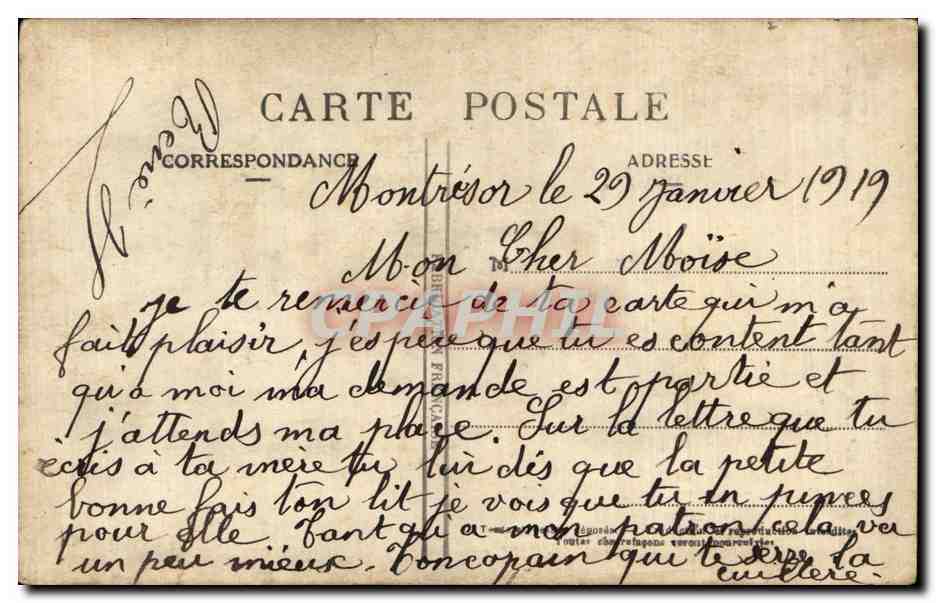 CARTE POSTALE
CORRESPONDANCE
ADRESSE
René
Montrésor le 29 janvier 1919
Mon Cher Moïse
je te remercie de ta carte qui m'a
fait plaisir, j'espère que tu es content tant
qu'a moi ma demande est partie et
j'attends ma place. Sur la lettre que tu
écris à ta mère tu lui dés que la petite
bonne fais ton lit je vois que tu en pinces
pour elle Tant qu'a mon patron cela va
un peu mieux. Ton copain qui te serre la
cuillère.
CPAPHIL
FABRICATION FRANÇAISE
reproduction interdites
Toutes contrefaçons seront poursuivies